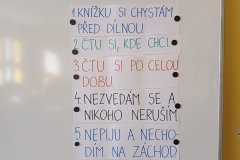 1 KNÍŽKU SI CHYSTÁM
PŘED DÍLNOU
2 ČTU SI, KDE CHCI.
3 ČTU SI PO CELOU
DOBU.
4 NEZVEDÁM SE A
NIKOHO NERUŠÍM.
5 NEPIJU A NECHO-
DÍM NA ZÁCHOD